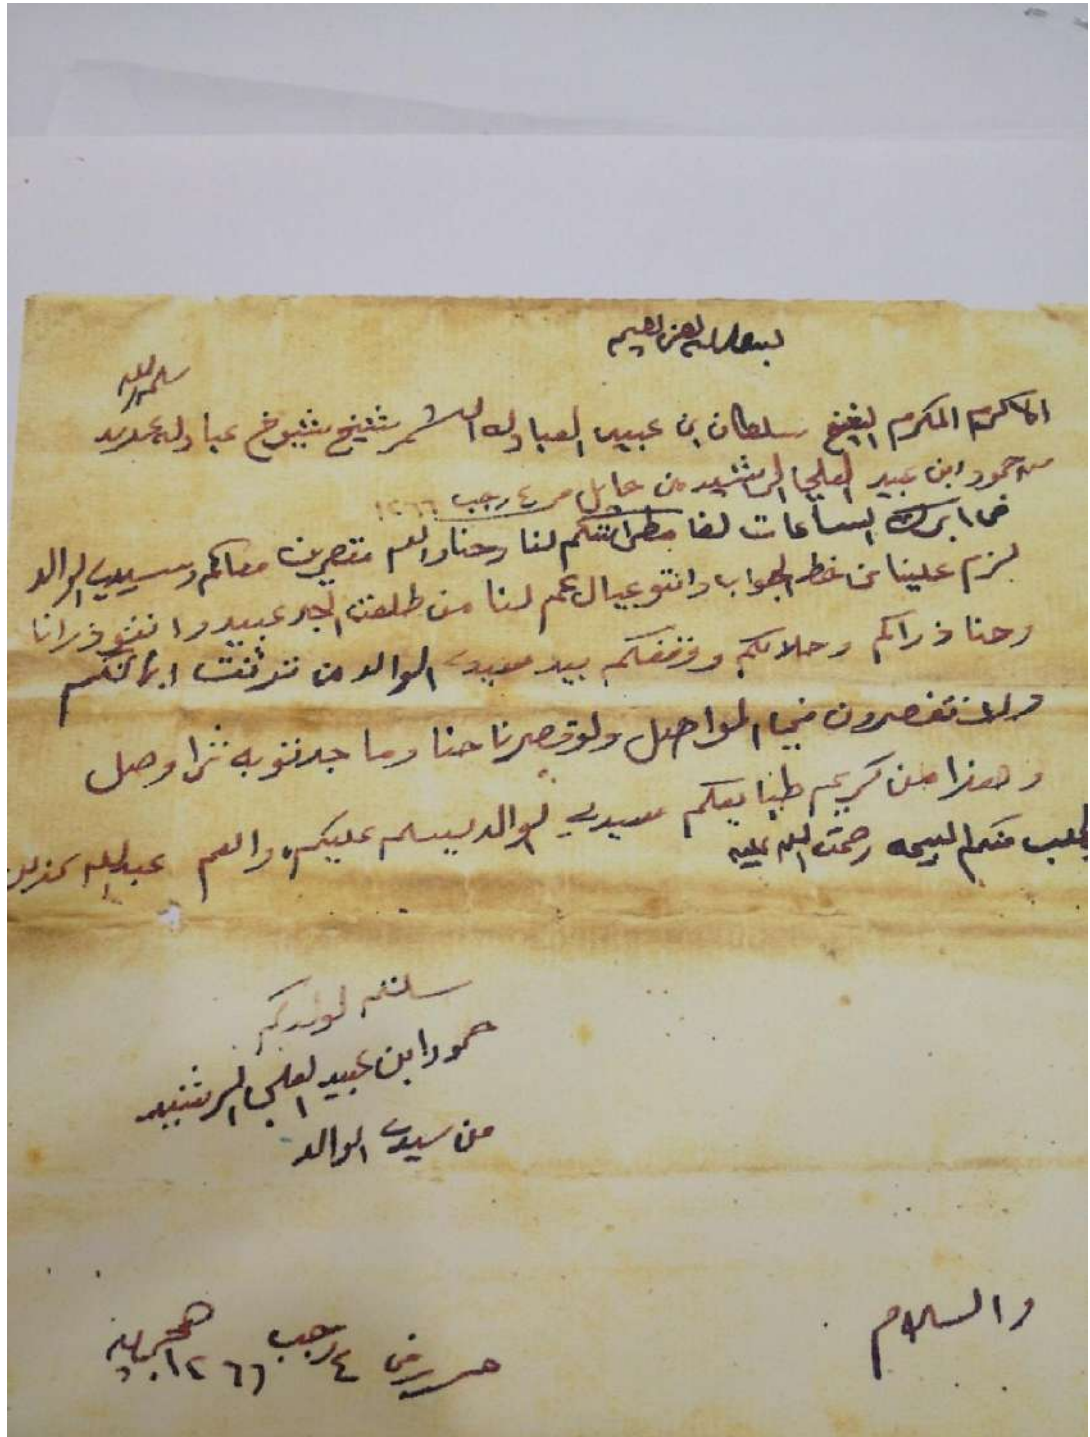 بسم الله الرحمن الرحيم
سلمه الله
الاكرم المكرم الشيخ سلطان ابن عبيد العبادله الاسمر شيخ شيوخ عبادله
من حمود ابن عبيد العلي الرشيد من حايل من ٤ رجب ١٢٦٦
في ابرك الساعات لفا لنا وحنا والعم مقصرين معاكم وسيدي الوالد
لزم علينا من خط الجواب وانتو عيال عم لنا من طلعت الجد عبيد وانتو ذرانا
وحنا ذراكم وحلالكم ووقفكم بيد سيدي الوالد من
ولا تقصرون في المواصل ولو قصرنا حنا وما جدتو به ترا وصل
وهذا من كريم طبايعكم سيدي الوالد يسلم عليكم والعم عبدالله
يطلب منكم البيحه رحمت الله عليه
سلنتم لولدكم
حمود ابن عبيد العلي الرشيد
من سيدي الوالد
والسلام
حرر في ٤ رجب ١٢٦٦ هجريه